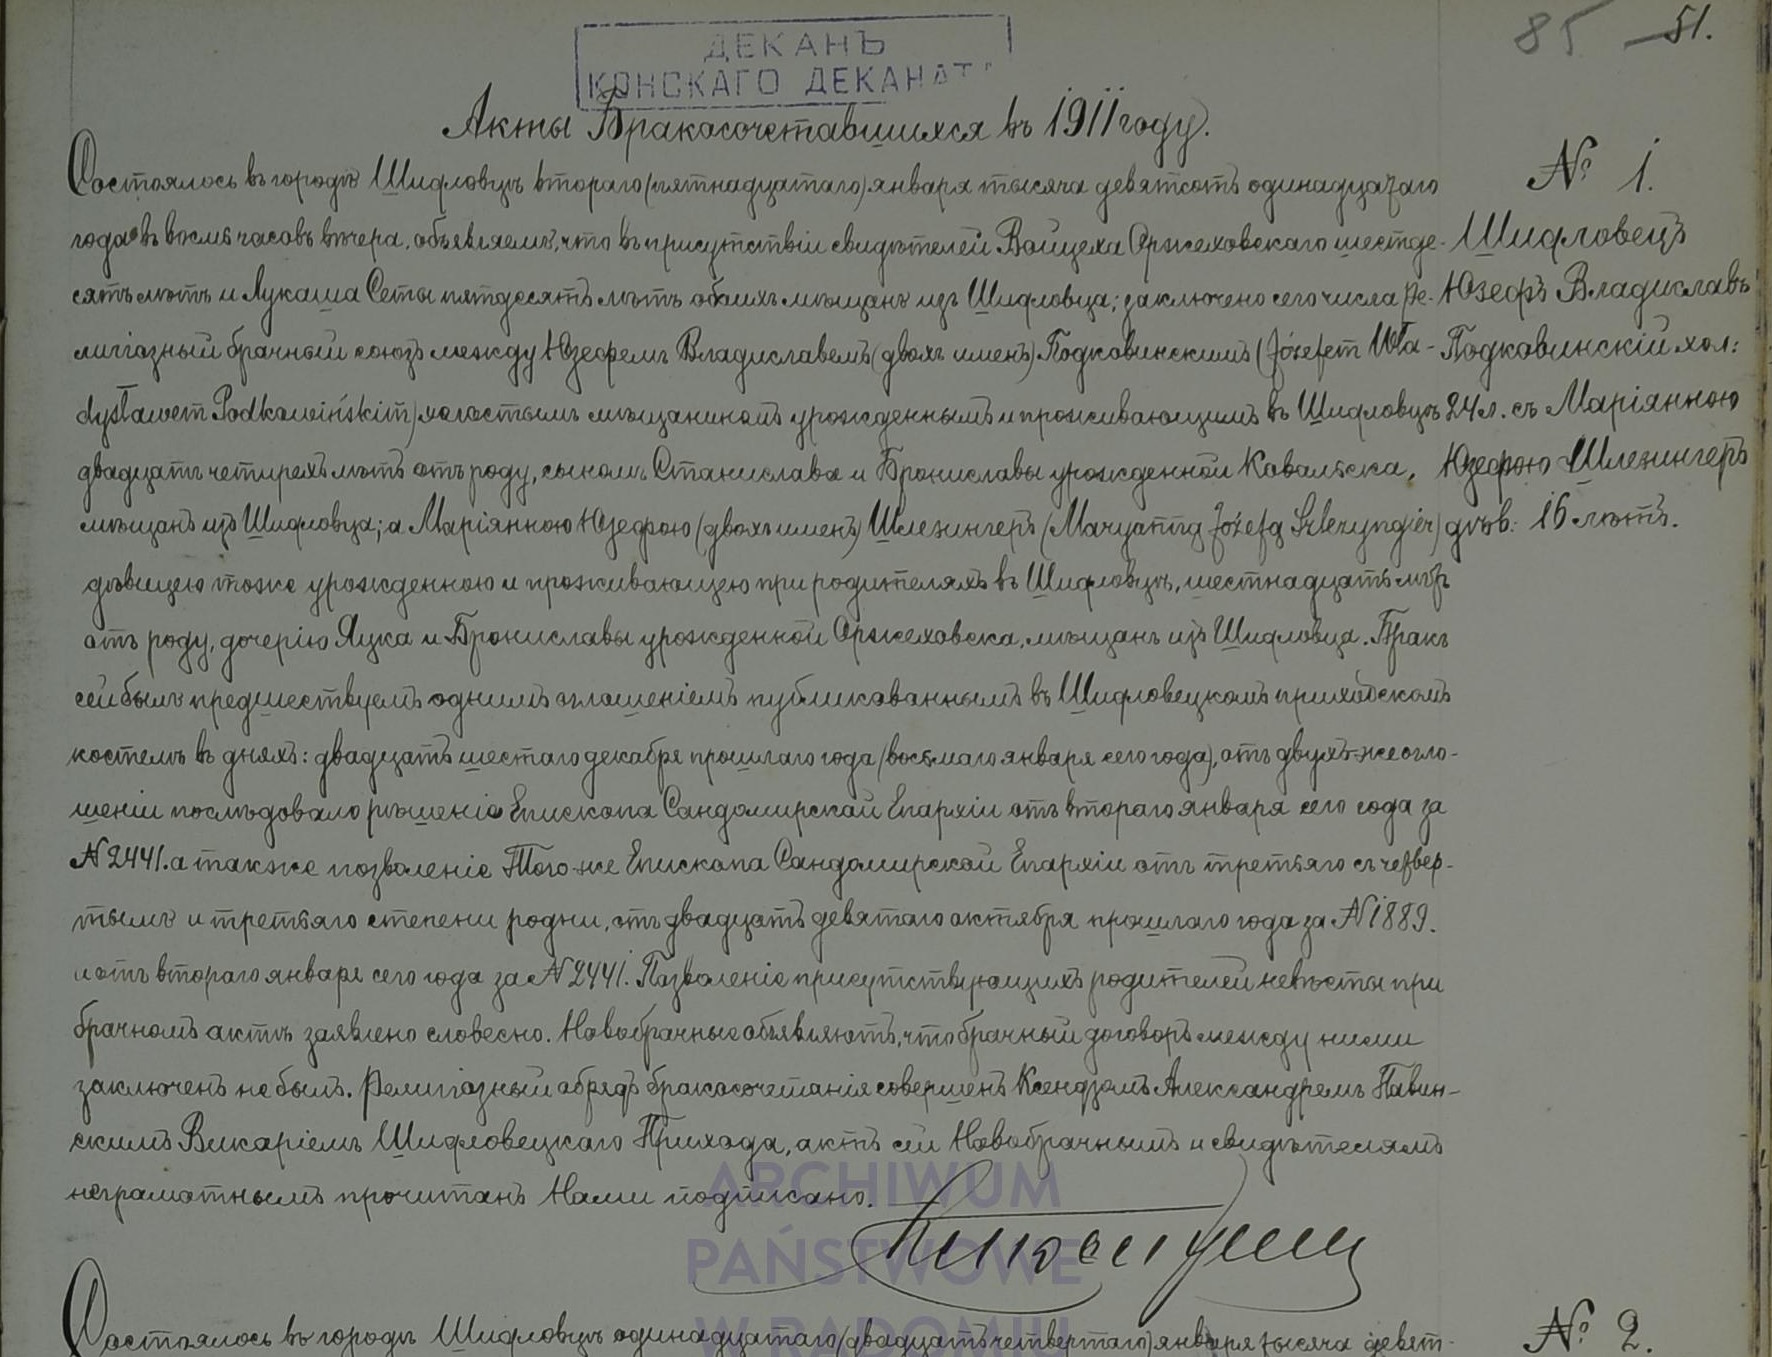 85 — 51.
ДЕКАНЪ
КОНСКАГО ДЕКАНАТ
Акты Бракосочетавшихся въ 1911 году.
№ 1.
Состоялось въ городѣ Шидловцѣ втораго (пятнадцатаго) января тысяча девятсотъ одинадцатаго
года въ восмь часовъ вечера. объявляемъ, что въ присутствіи свидѣтелей Войцеха Оржеховскаго шестде-
сятъ лѣтъ и Лукаша Сеты пятдесятъ лѣтъ обоихъ мѣщанъ изъ Шидловца; заключено сего числа ре-
лигіозный брачный союзъ между Юзефемъ Владиславемъ (двохъ именъ) Подковинскимъ (Józefem Wła-
dysławem Podkowińskim) холостымъ мѣщаниномъ урожденнымъ и проживающимъ въ Шидловцѣ
двадцать четирехъ лѣтъ отъ роду, сыномъ Станислава и Брониславы урожденной Ковальска,
мѣщанъ изъ Шидловца; а Маріянною Юзефою (двохъ именъ) Шлезингеръ (Maryanną Józefą Szlezyngier)
дѣвицею тоже урожденною и проживающею при родителяхъ въ Шидловцѣ, шестнадцать лѣтъ
отъ роду, дочерію Яцка и Брониславы урожденной Оржеховска, мѣщанъ изъ Шидловца. Бракъ
сей былъ предшествуемъ однимъ оглашеніемъ публикованнымъ въ Шидловецкомъ приходскомъ
костелѣ въ дняхъ: двадцать шестаго декабря прошлаго года (восьмаго января сего года), отъ двухъ-же огло-
шеніи послѣдовало рѣшеніе Епископа Сандомирской Епархіи отъ втораго января сего года за
№ 2441. а также позволеніе Того-же Епископа Сандомирской Епархіи отъ третьяго съ четвер-
тымъ и третьяго степени родни, отъ двадцать девятаго октября прошлаго года за № 1889.
и отъ втораго января сего года за № 2441. Позволеніе присутствующихъ родителей невѣсты при
брачномъ актѣ заявлено словесно. Новобрачные объявляютъ, что брачный договоръ между ними
заключенъ не былъ. Религіозный обрядъ бракосочетанія совершенъ Ксендзомъ Александремъ Павин-
скимъ Викаріемъ Шидловецкаго Прихода, актъ сей Новобрачнымъ и свидѣтелямъ
неграмотнымъ прочитанъ Нами подписано.
Шидловецъ
Юзефъ Владиславъ
Подковинскій хол:
24 л. съ Маріянною
Юзефою Шлезингеръ
дѣв: 16 лѣтъ.
ARCHIWUM
PAŃSTWOWE
W RADOMIU
Состоялось въ городѣ Шидловцѣ одинадцатаго (двадцать четвертаго) января тысяча девят-
№ 2.